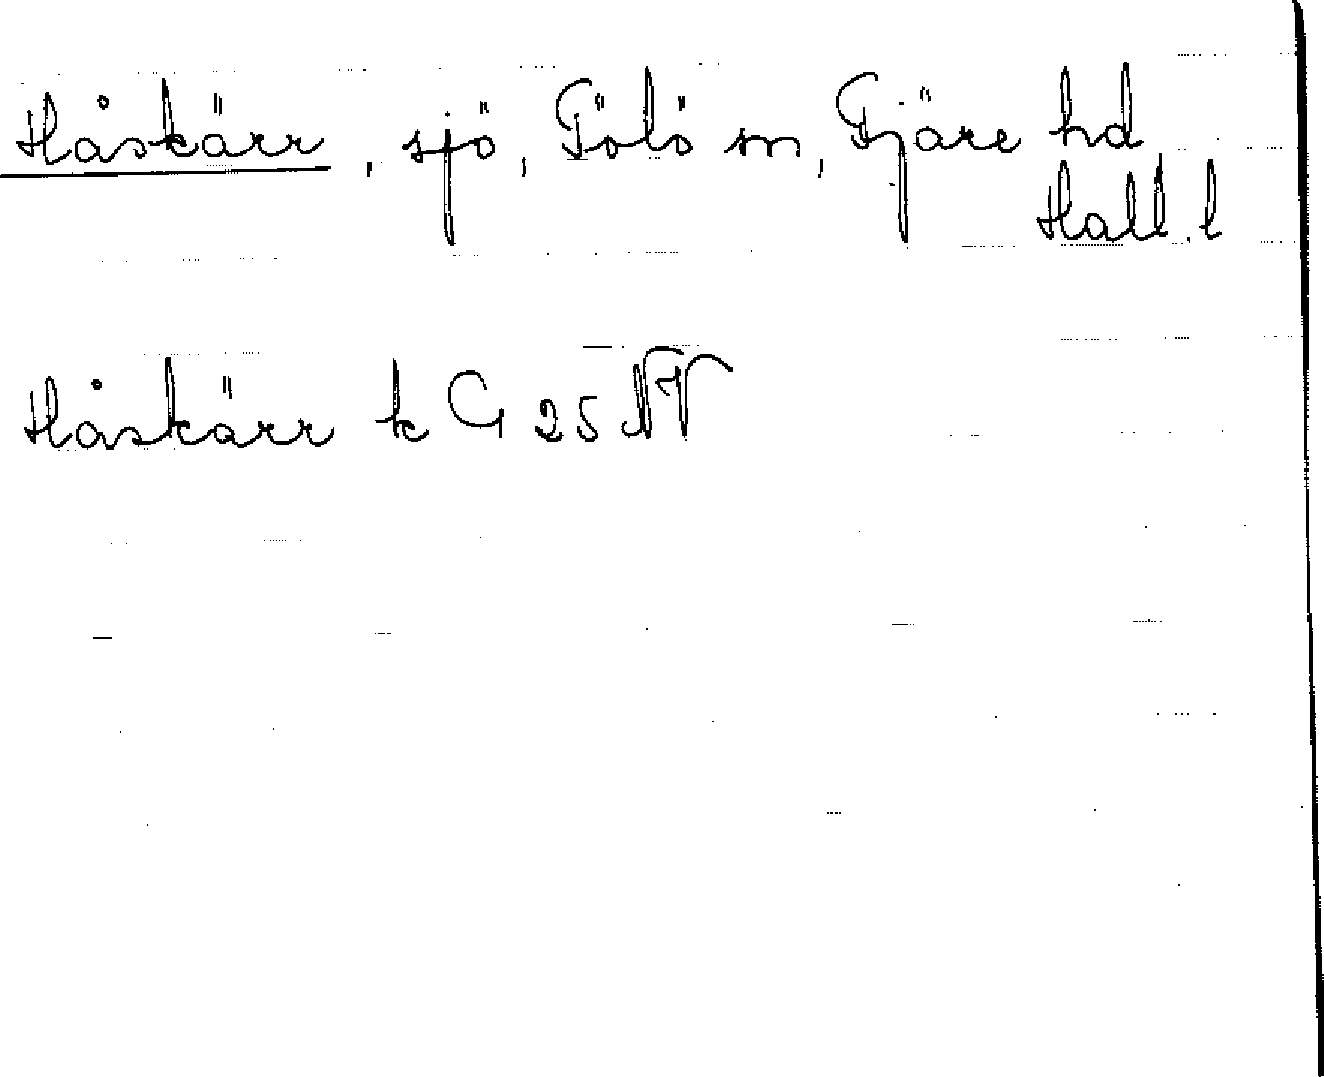 Håskärr, sjö, Tölö sn, Fjäre hd
Hall. l
Håskärr k G 25 NV